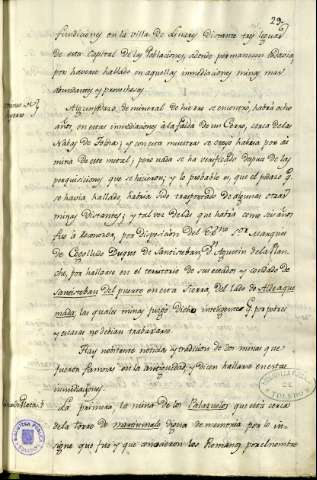 29.
fundiciones en la villa de Linares distante tres leguas
de esta capital de las Poblaciones, adonde permanecen todavia
por haverse hallado en aquellas inmediaciones minas mas
abundantes y
Algun trozo de mineral de hierro se encontró, habrá ocho
años, en estas inmediaciones á la falda de un Cerro, cerca de las
Navas de Tolosa; y con esta muestra se creyó habria por
mina de este metal; pero nada se ha verificado despues de las
perquisiciones que se hicieron; y lo probable es, que el pedazo q.
se havia hallado, habria sido trasportado de alguna otra
minas distantes; y tal vez de las que habrá como seis años
fue á reconocer, por disposicion del Ex.mo S.or Marques
de Cogolludo Duque de Santisteban, D.n Agustin de la Plan
che, por hallarse en el territorio de sus estados y condado de
Santisteban del puerto en esta Sierra, del lado de Aldeaque
mada; las quales minas juzgó dicho inteligente q. por pobres
y escasas no debian trabajarse.
Hay no obstante noticias y tradicion de dos minas que
fueron famosas en la antiguedad, y dicen hallarse en estas
inmediaciones.
La primera, la mina de los Palazuelos que está cerca
de la torre de martinmalo digna de memoria por lo in-
signe que fue y que conocieron los Romanos por el nombre
TOLEDO